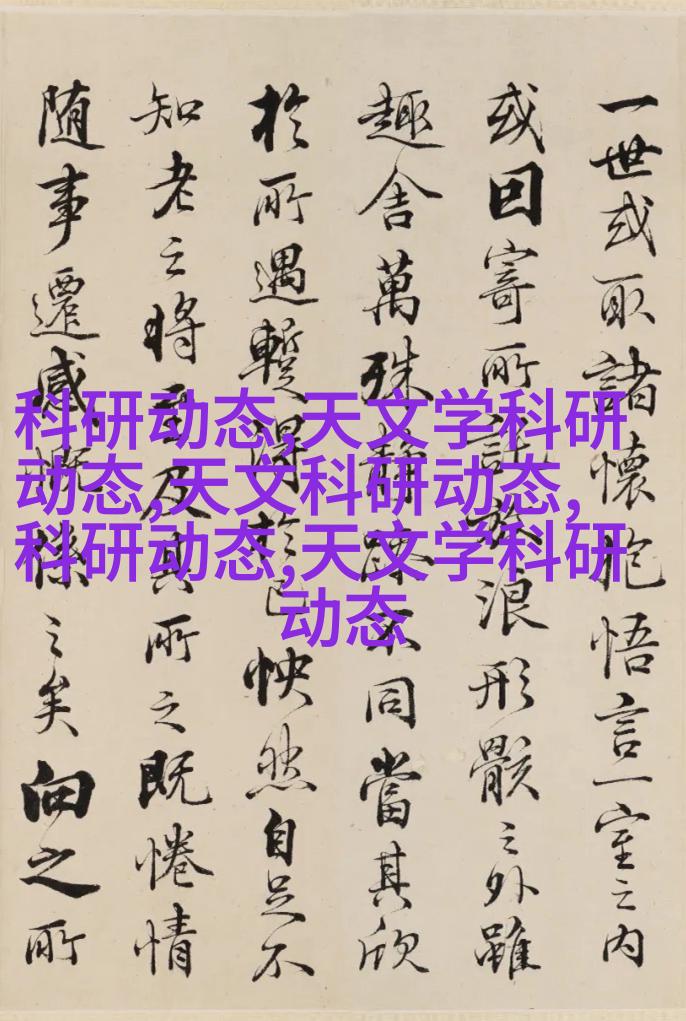 一世或取諸懷抱悟言一室之内
或因寄所託放浪形骸之外雖
趣舍萬殊静躁不同當其欣
於所遇蹔得於己怏然自足不
知老之将至及其所之既惓情
随事遷感慨係之矣向之所
科研动态,天文学科研
动态,天文科研动态,
科研动态,天文学科研
动态